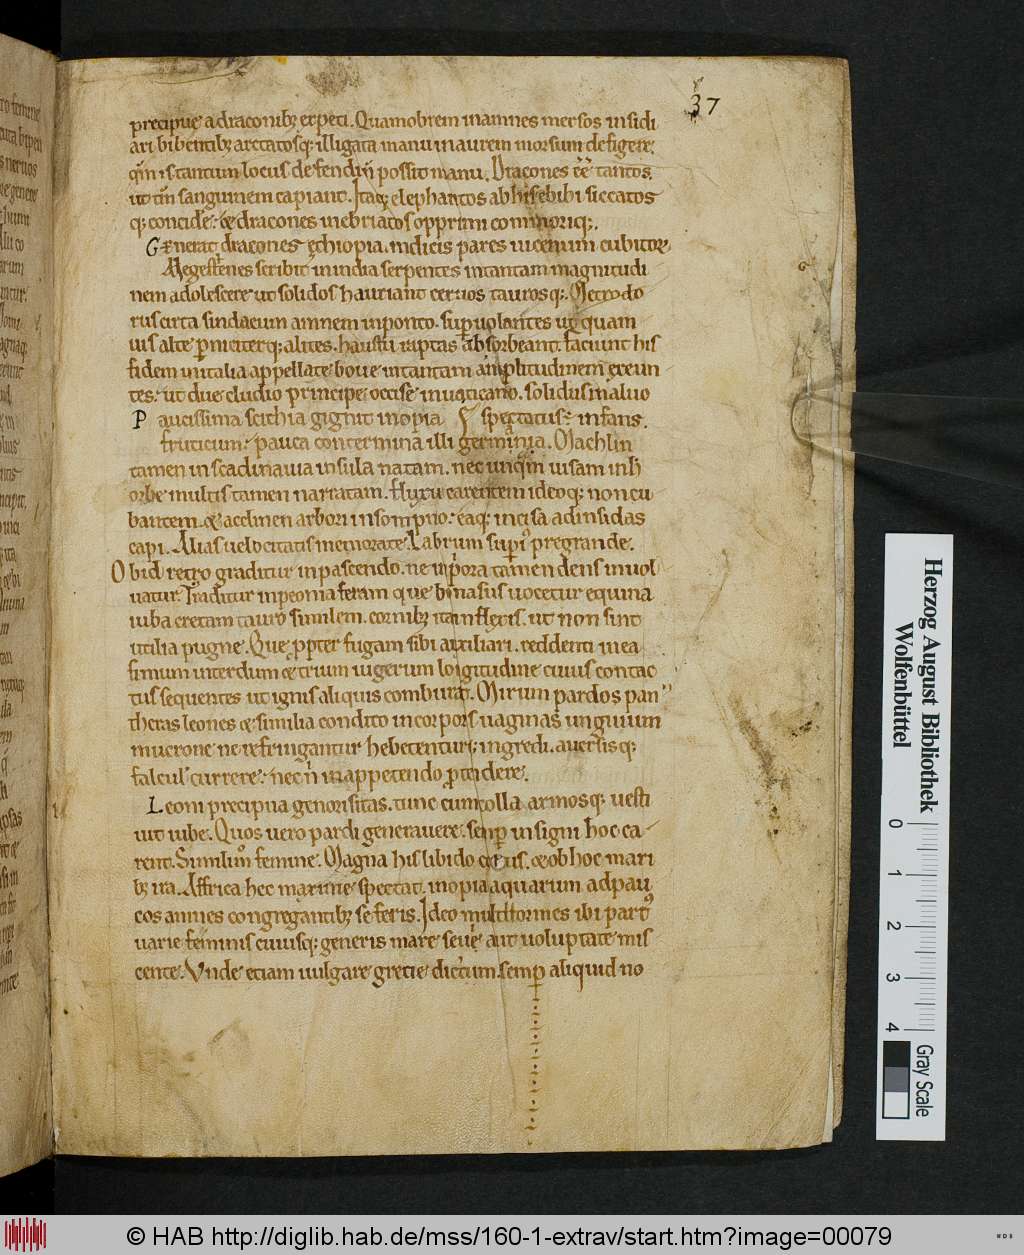 37
precipue a draconibꝫ expeti. Quamobrem in amnes mersos insidi
ari bibentibꝫ artatosq; illigata manu in aurem morsum defigere;
qm̄ is tantum locus defendi ñ possit manu. Dracones eē tantos
ut totum sanguinem capiant. Itaq; elephantos ab his ebibi siccatos
q; concide. & dracones inebriatos opprimi commoriq;.
Generat dracones ęthiopia. indicis pares uicenum cubitorum
Megestenes scribit in india serpentes in tantam magnitudi
nem adolescere ut solidos hauriant ceruos taurosq;. Metrodo
rus circa sindacum amnem in ponto. sup̱uolantes ut quam
uis alte p̱niciterq; alites. haustu raptas absorbeant. faciunt his
fidem in italia appellate boue in tantam amplitudinem exeun
tes. ut due cludio principe occise in uaticano. solidus in aluo
Paucissima scithia gignit inopia spectatus. infans.
fruticum. pauca contermina illi germania. Machlin
tamen in scadinauia insula natam. nec unqm̄ uisam in h
orbe multis tamen narratam. flexu carentem ideoq; non cu
bantem. & acclinen arbori in sompno. eaq; incisa ad insidas
capi. Alias uelocitatis memorate. Labrum supius pregrande.
Obid retro graditur in pascendo. ne in priora tamen dens inuol
uatur. Traditur in peonia feram que binasus uocetur equina
iuba cretam tauro similem. cornibꝫ ita inflexis. ut non sint
utilia pugne. Que p̱pter fugam sibi auxiliari. reddenti in ea
fimum interdum & trium iugerum longitudine cuius contac
tus sequentes ut ignis aliquis comburat. Mirum pardos pan
theras leones & similia condito in corporis uaginas unguium
mucrone ne refringantur hebetentur; ingredi. auersisq;
falcul' currere. nec ñ in appetendo p̱tendere.
Leoni precipua generositas. tunc cum colla armosq; uesti
unt iube. Quos uero pardi generauere. semp̱ insigni hoc ca
rent. Similium femine. Magna his libido coitus. & ob hoc mari
bꝫ ira. Affrica hec maxime spectat. inopia aquarum ad pau
cos amnes congregantibꝫ se feris. Ideo multiformes ibi partus
uarie feminis cuiusq; generis mare seu ui aut uoluptate mis
cente. Vnde etiam uulgare gretie dictum. semp̱ aliquid no
Herzog August Bibliothek
Wolfenbüttel
0 1 2 3 4
Gray Scale
© HAB http://diglib.hab.de/mss/160-1-extrav/start.htm?image=00079